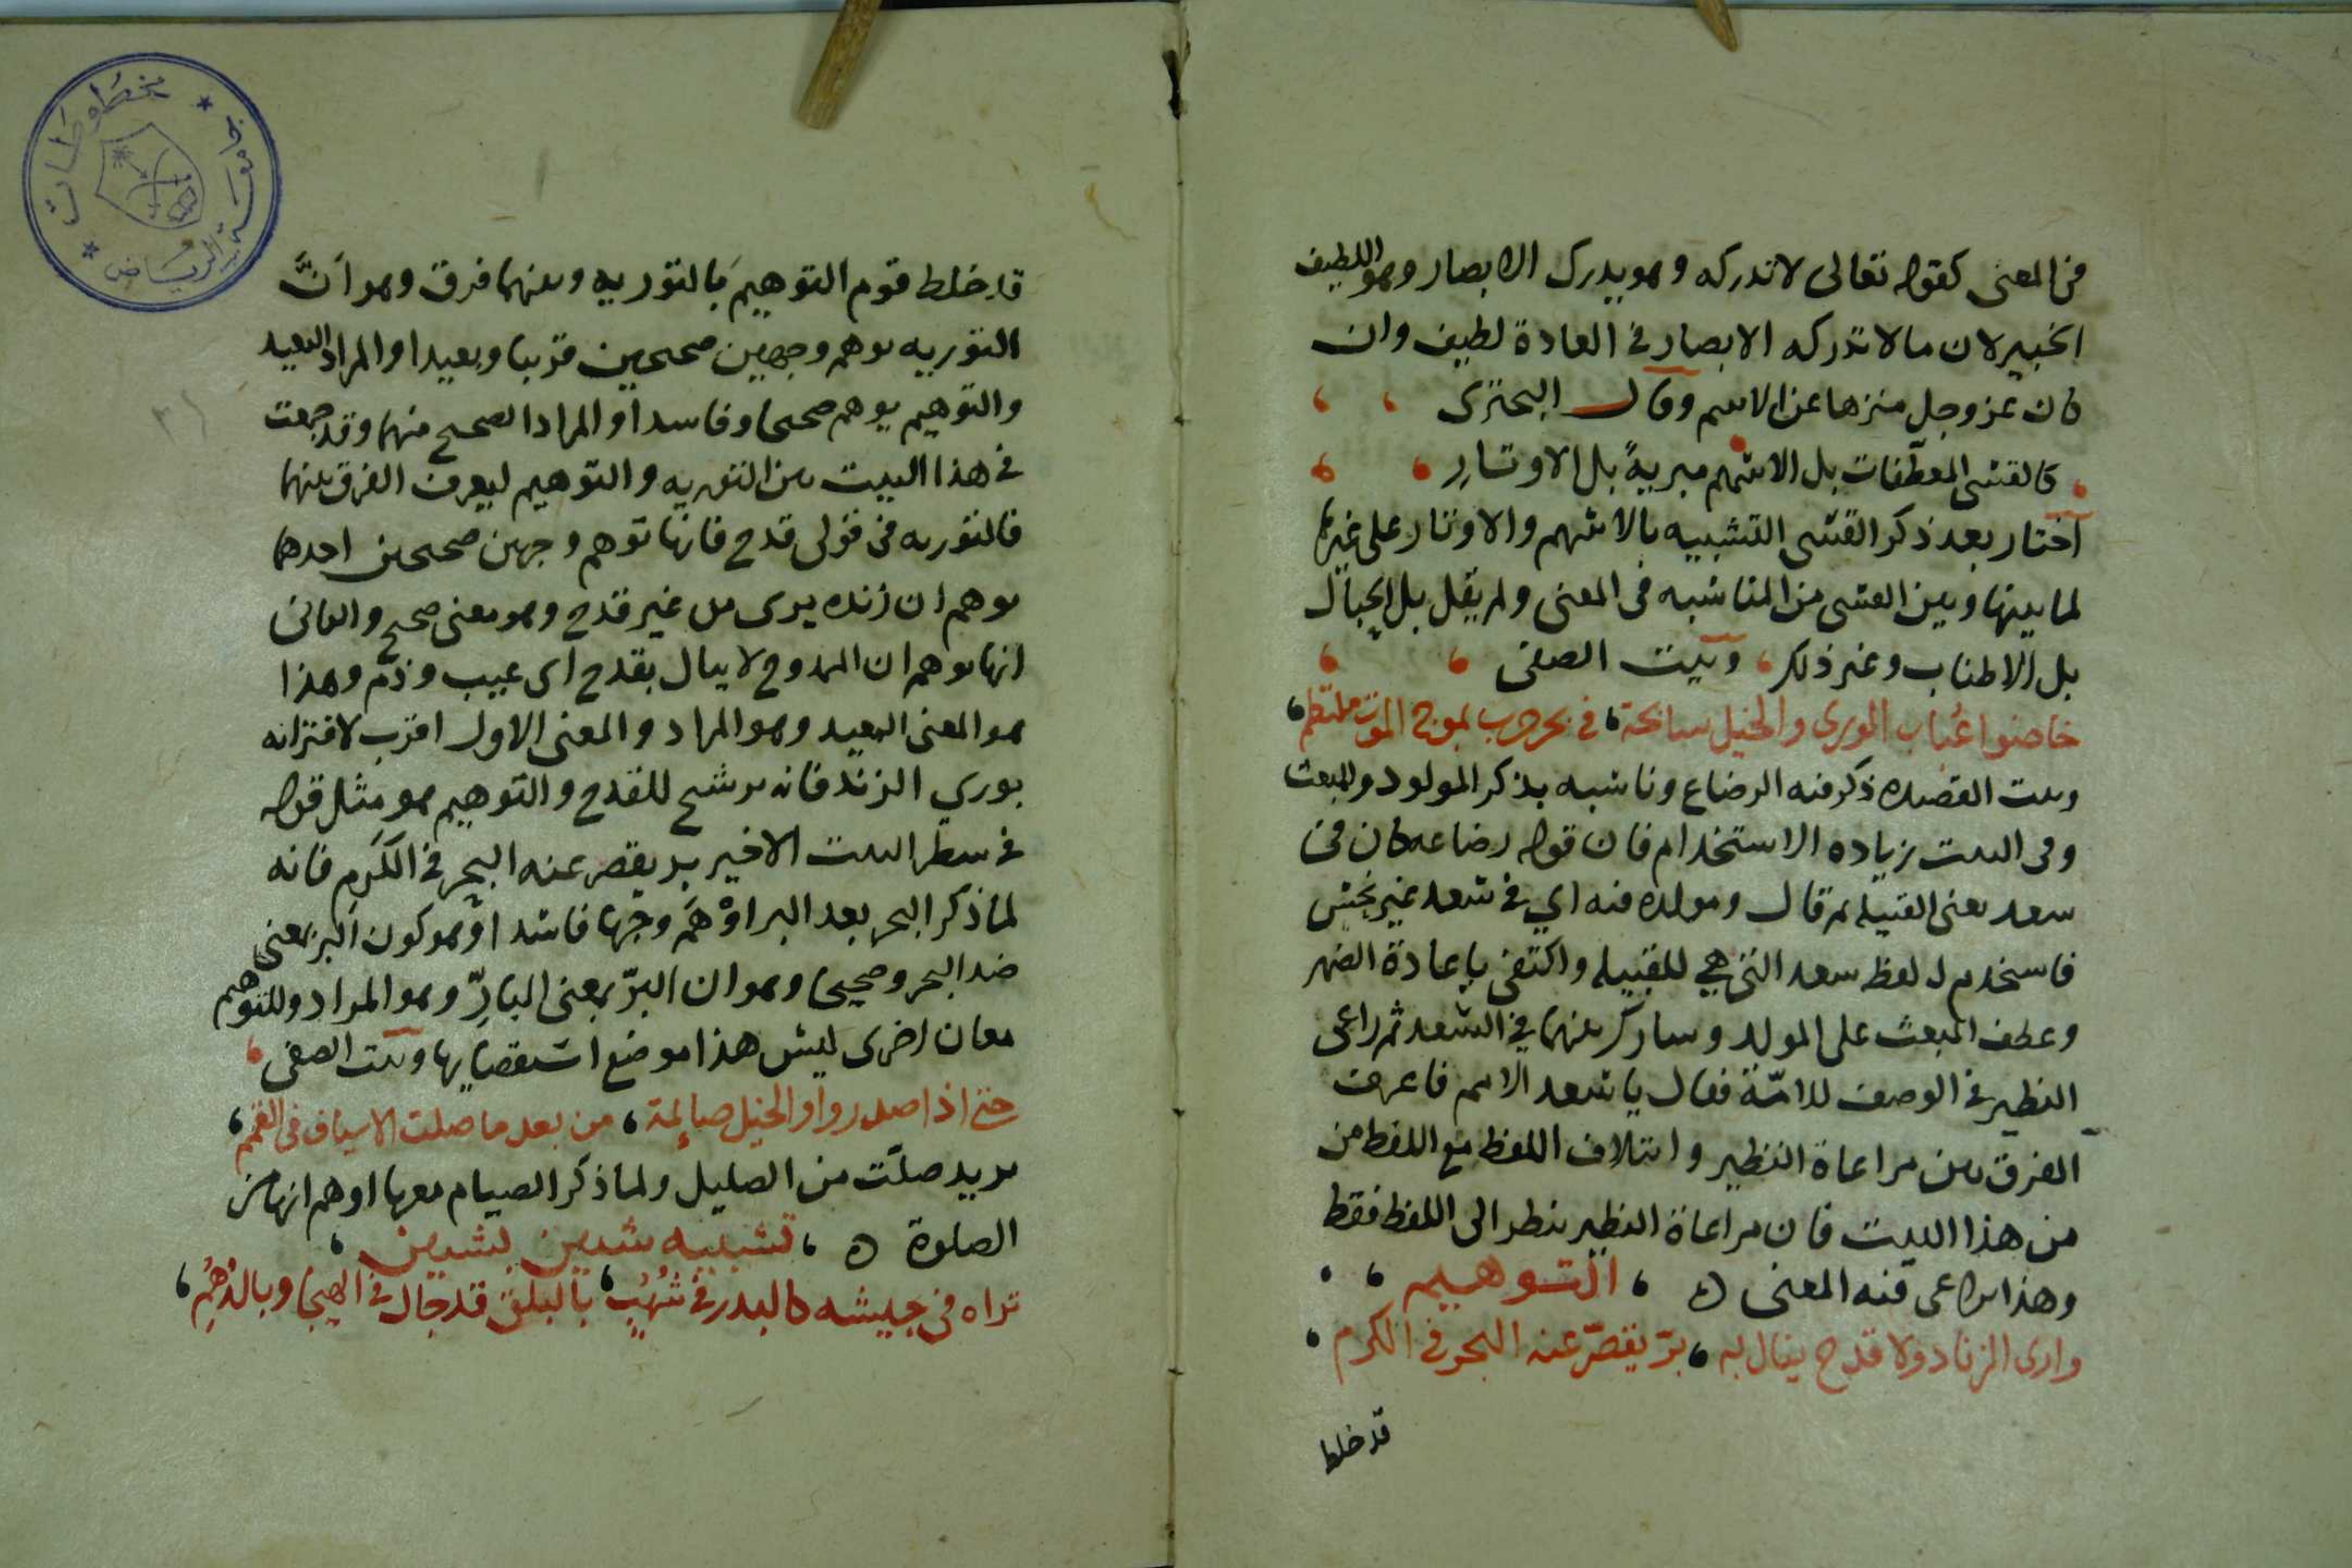 في المعنى كقوله تعالى لا تدركه وهو يدرك الابصار وهو اللطيف
الخبير لان ما لا تدركه الابصار في العادة لطيف وان
كان عز وجل منزها عن الاسم وقال البحتري
كالقسي المعطّفات بل الاسهم مبريةً بل الاوتارِ
اختار بعد ذكر القسي التشبيه بالاسهم والاوتار على غيرها
لما بينها وبين القسي من المناسبه في المعنى ولم يقل بل الحبال
بل الاطناب وغير ذلك وبيت الصفى
خاضوا عُباب الورى والخيل سابحة في بحر حرب بموج الموت ملتطم
وبيت القصيده ذكر فيه الرضاع وناسبه بذكر المولود والمبعث
وفى البيت زياده الاستخدام فان قوله رضاعه كان في
سعد يعنى القبيله ثم قال ومولده فيه اي في سعد غير نحس
فاستخدم لـ لفظ سعد التي هي للقبيله واكتفى باعادة الضمير
وعطف المبعث على المولد وشارك بينهما في السعد ثم راعى
النظير في الوصف للامّة فقال يا سعد الامم فاعرف
الفرق بين مراعاة النظير وائتلاف اللفظ مع اللفظ من
من هذا البيت فان مراعاة النظير ينظر الى اللفظ فقط
وهذا يراعى فيه المعنى ه التوهيم
وارى الزناد ولا قدح ينال به برّ يقصّر عنه البحر في الكرم
قد خلط
قد خلط قوم التوهيم بالتوريه وبينهما فرق وهو انَّ
التوريه توهم وجهين صحيحين قريبا وبعيدا والمراد البعيد
والتوهيم يوهم صحيحا وفاسدا والمراد الصحيح منهما وقد جمعت
في هذا البيت بين التوريه والتوهيم ليعرف الفرق بينهما
فالتوريه في قولى قدح فانها توهم وجهين صحيحين احدهما
يوهم ان زنده يرى من غير قدح وهو معنى صحيح والثانى
انها توهم ان الممدوح لا ينال بقدح اى عيب وذم وهذا
هو المعنى البعيد وهو المراد والمعنى الاول اقرب لاقترانه
بوري الزند فانه ترشيح للقدح والتوهيم هو مثل قوله
في سطر البيت الاخير بر يقصر عنه البحر في الكَرم فانه
لما ذكر البحر بعد البر اوْهَم وجها فاسدا وهو كون البر بمعنى
ضد البحر وصحيحا وهو ان البرّ بمعنى البارِّ وهو المراد وللتوهيم
معان اخرى ليس هذا موضع استقصايها وبيت الصفى
حتى اذا صدروا والخيل صائمة من بعد ما صلت الاسياف في القمم
يريد صلّت من الصليل ولما ذكر الصيام معها اوهم انها من
الصلوة ه تشبيه شيين بشيين
تراه في جيشه كالبدر في شُهُبٍ بالبلق قد جال في الهيجا وبالدُهُم
جامعة الرياض
مخطوطات